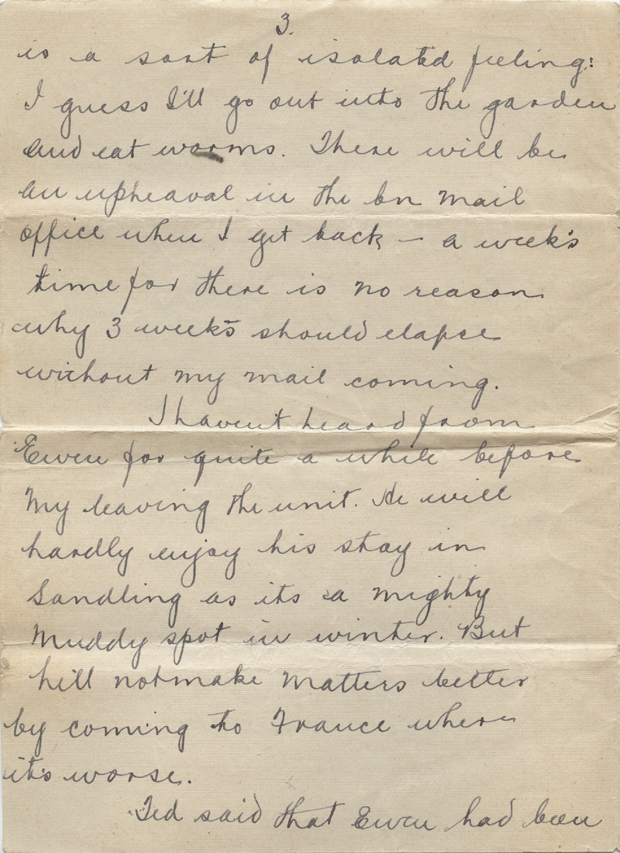 3.
is a sort of isolated feeling:
I guess I'll go out into the garden
and eat worms. There will be
an upheaval in the bn mail
office when I get back – a week's
time for there is no reason
why 3 weeks should elapse
without my mail coming.
I havent heard from
Ewen for quite a while before
my leaving the unit. He will
hardly enjoy his stay in
Sandling as its a mighty
muddy spot in winter. But
hell not make matters better
by coming to France where
it's worse.
Ted said that Ewen had been